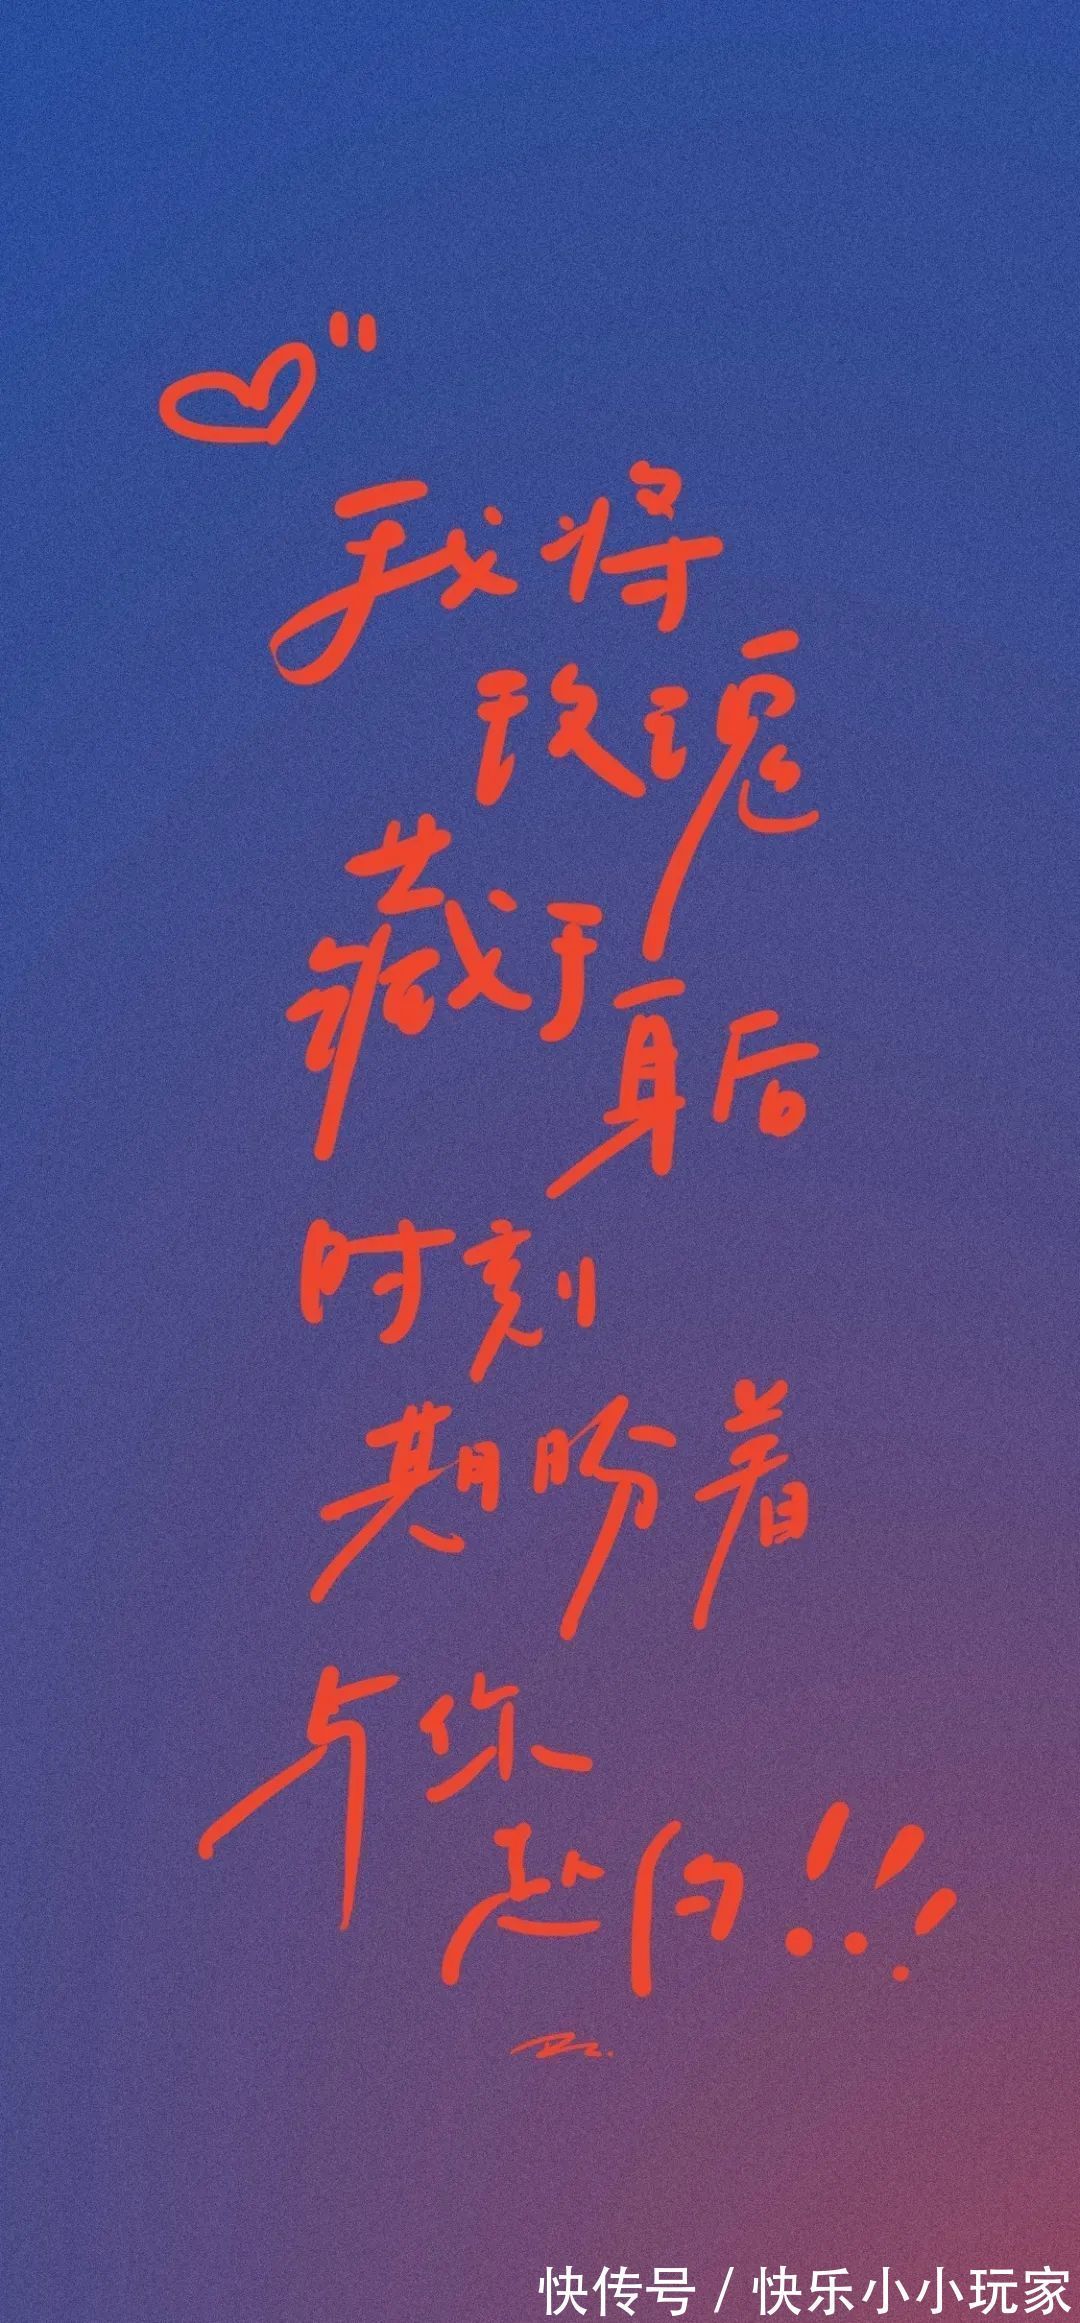 我将
玫瑰
藏于
身后
时刻
期盼着
与你
赴约!!!
快传号 / 快乐小小玩家